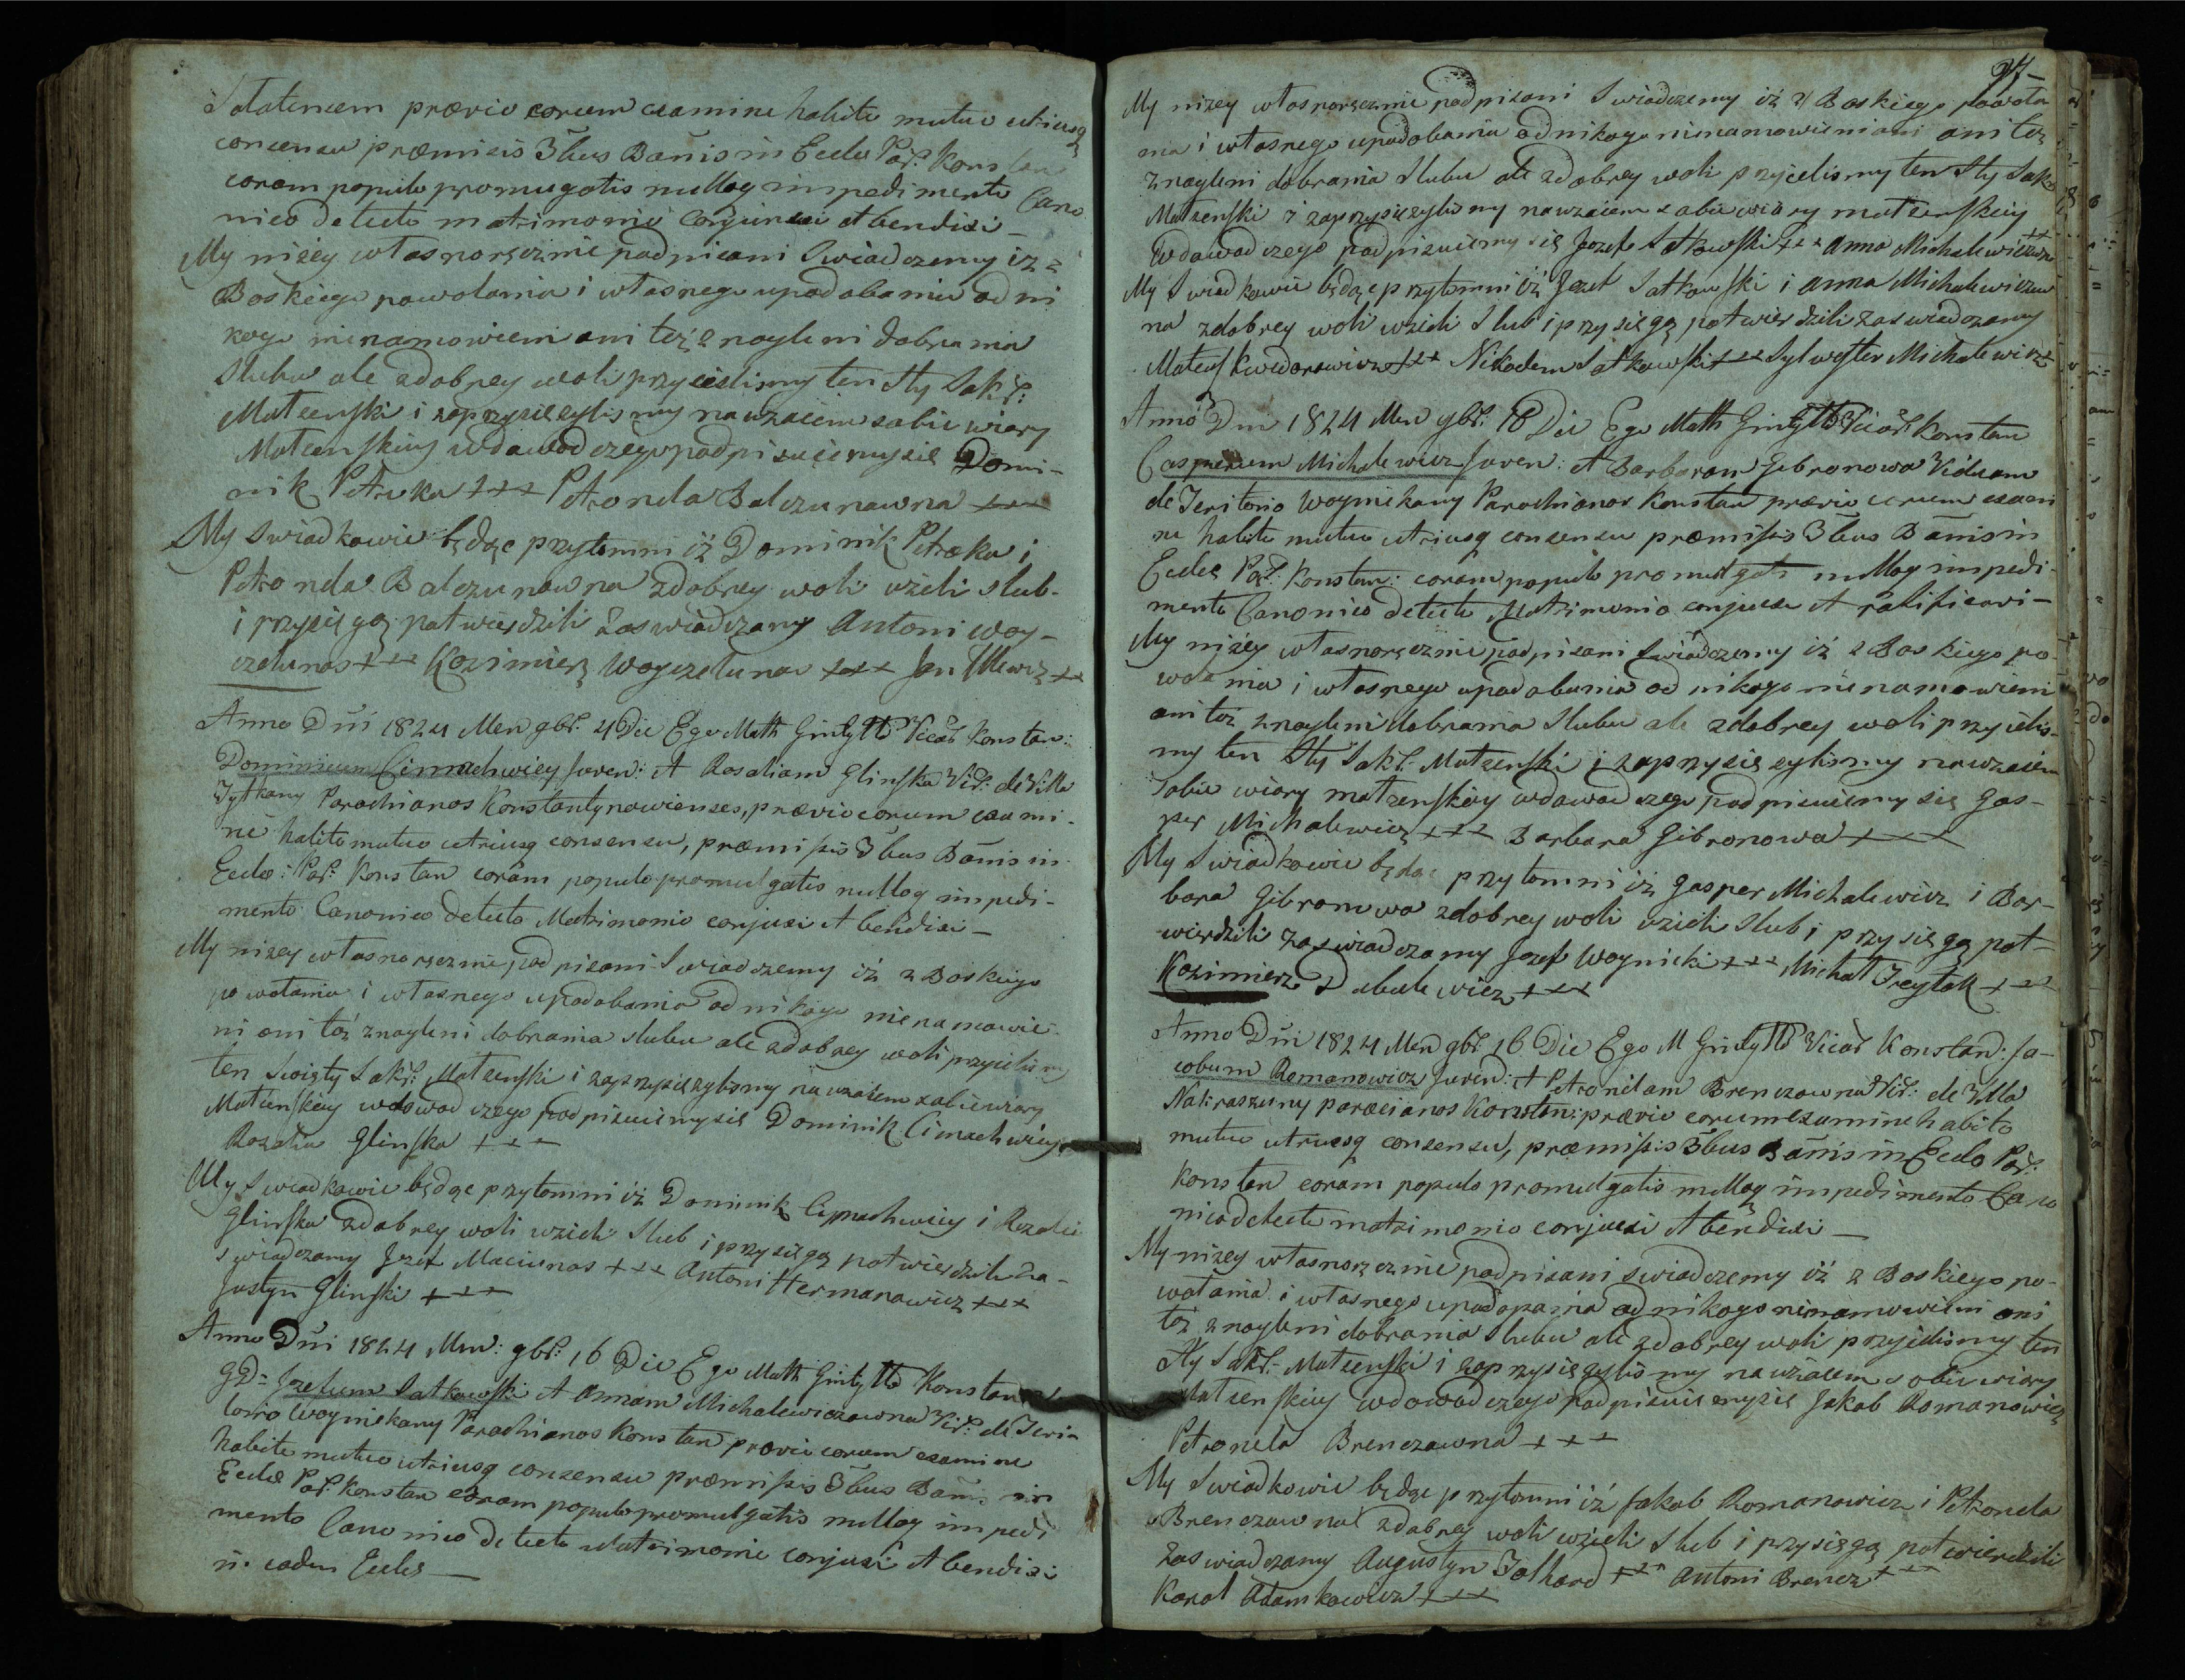 præviò eorum examine habito mutuo utriusq
consensu præmissis 3bus Banis in Eccla Par: Konstan
coram populo promugatis nulloq impedimento Cano
nico detecto matrimonio conjunxi et bendixi –
My niżey własnoręcznie podpisani Swiadczemy iż z
Boskiego powołania i własnego upodobania od ni
kogo nienamowieni ani też znagleni do brania
Slubu ale z dobrey woli przyieliśmy ten Sty Sakr:
Małzenski i zaprzysięzyliśmy nawzaiem sobie wiary
Małzenskiey w dowod czego podpisuiemy się Domi-
nik Petruka +++ Petronela Balczunowna +++
My Swiadkowie będąc przytomni iż Dominik Petruka i
Petronela Balczunowna z dobrey woli wzieli slub
i przysięgą potwierdzili Zaswiadczamy Antoni Woy-
czelunas +++ Kazimierz Woyczelunas +++ Jan +++
Anno Dni 1824 Men 9br: 4 Die Ego Math Gintyłło Vicar Konstan:
Dominicum Cimachwicy Juven: et Rosaliam Glinska Vir: de Villa
Jytkany Parochianos Konstantynowienses, prævio eorum exami-
ne habito mutuo utriusq consensu, præmissis 3bus Banis in
Eccla: Par: Konstan coram populo promulgatis nulloq impedi-
mento Canonico detecto Matrimonio conjuxi et bendixi –
My niżey własnoręcznie podpisani Swiadczemy iż z Boskiego
powołania i własnego upodobania od nikogo nienamowie-
ni ani też znagleni do brania slubu ale z dobrey woli przyielismy
ten Swięty Sakr: Małzenski i zaprzysięzylismy nawzaiem sobie wiary
Małzenskiey w dowod czego podpisuiemy się Dominik Cimachwicy
Rozalia Glinska +++
My Swiadkowie będąc przytomni iż Dominik Cymachwicy i Rozalia
Glinska z dobrey woli wzieli Slub i przysięgą potwierdzili Za-
swiadczamy Jozef Maciunas +++ Antoni Hermanowicz +++
Justyn Glinski +++
Anno Dni 1824 Men: 9br: 16 Die Ego Math Gintyłło Konstan
GD: Jozefum Satkowski et Annam Michalewiczowna Vir: de Teri-
torio Woyniekany Parochianos Konstan prævio eorum examine
habito mutuo utriusq consensu præmissis 3bus Banis in
Eccla Par: Konstan coram populo promulgatis nulloq impedi
mento Canonico detecto Matrimonio conjuxi et bendixi
in eadem Eccla –
27–
My niżey własnoręcznie podpisani Swiadczemy iż z Boskiego powoła
nia i własnego upodobania od nikogo nienamowieni ani też
znagleni do brania Slubu ale z dobrey woli przyielismy ten Sty Sakr
Małzenski i zaprzysięzylismy nawzaiem sobie wiary małzenskiey
W dowod czego podpisuiemy się Jozef Satkowski +++ Anna Michalewiczowna ++
My Swiadkowie będąc przytomni iż Jozef Satkowski i Anna Michalewiczow
na z dobrey woli wzieli Slub i przysięgą potwierdzili Zaswiadczamy
Mateusz Kwedorowicz +++ Nikodem Satkowski +++ Sylwester Michalewicz +
Anno Dni 1824 Men 9br: 16 Die Ego Math Gintyłło Vicar Konstan
Casperum Michalewicz Juven: et Barboram Gibronowa Viduam
de Teritorio Woyniekany Parochianos Konstan prævio eorum exami
ne habito mutuo utriusq consensu præmissis 3bus Banis in
Eccla Par: Konstan: coram populo promulgatis nulloq impedi-
mento Canonico detecto Matrimonio conjuxi et ratificavi –
My niżey własnoręcznie podpisani swiadczemy iż z Boskiego po
wołania i własnego upodobania od nikogo nienamowieni
ani też znagleni do brania Slubu ale z dobrey woli przyielis-
my ten Sty Sakr: Małzenski i zaprzysięzylismy nawzaiem
Sobie wiary małzenskiey w dowod czego podpisuiemy się Gas-
per Michalewicz +++ Barbara Gibronowa +++
My Swiadkowie będąc przytomni iż Gasper Michalewicz i Bar-
bara Gibronowa z dobrey woli wzieli Slub i przysięgą pot-
wierdzili Zaswiadczamy Jozef Woynicki +++ Michał Treytak +++
Kazimierz +++
Anno Dni 1824 Men 9br 16 Die Ego M Gintyłło Vicar Konstan: Ja-
cobum Romanowicz Juven: et Petronelam Brenczowna Vir: de Villa
Nakraszuny parocianos Konstan: prævio eorum examine habito
mutuo utriusq consensu, præmissis 3bus Banis in Eccla Par:
Konstan coram populo promulgatis nulloq impedimento Cano
nico detecto matrimonio conjuxi et bendixi –
My niżey własnoręcznie podpisani swiadczemy iż z Boskiego po-
wołania i własnego upodopania od nikogo nienamowieni ani
też znagleni do brania Slubu ale z dobrey woli przyielismy ten
Sty Sakr: Małzenski i zaprzysięzylismy nawzaiem sobie wiary
Małzenskiey w dowod czego podpisuiemy się Jakob Romanowicz
Petronela Brenczowna +++
My Swiadkowie będąc przytomni iż Jakob Romanowicz i Petronela
Brenczowna z dobrey woli wzieli Slub i przysięgą potwierdzili
Zaswiadczamy Augustyn Jalhord +++ Antoni Brencz +++
Karol Adamkowicz +++